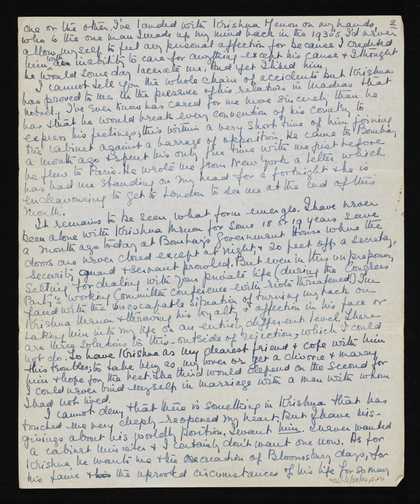 one or the other I've landed with Krishna Menon on my hands,
who is the one man I made up my mind back in the 1930's I'd never
allow myself to feel any personal affection for because I credited
him with inability to care for anything except his cause & I thought
he would some day lacerate me. And yet I had him
I cannot tell you the whole chain of accidents but Krishna
has proved to me in the presence of his relations in Madras that
nobody I've ever known has cared for me more sincerely than he
has & that he would break every convention of his country to
express his feelings; this within a very short time of him joining
the Cabinet against a barrage of opposition. He came to Bombay
a month ago & spent his only free time with me just before
he flew to Paris. He wrote me from New York a letter which
has had me standing on my head for a fortnight & he is
endeavouring to get to London to see me at the end of this
month.
It remains to be seen what form emerges. I have never
been alone with Krishna Menon for some 18 or 19 years save
a month ago today at Bombay's Government House where the
doors are never closed except at night & 20 feet off a secretary,
security guard & servant prowled. But even in this unpropitious
setting for dealing with your private life (during the Congress
Party's Working Committee Conference with riots threatened) I'm
faced with the inescapable situation of turning my back on
Krishna Menon & throwing his loyalty & affection in his face or
taking him into my life on an entirely different level. There
are three solutions to this - outside of rejecting, which I could
not do: to have Krishna as my dearest friend & cope with him
this troubles; to take him as my lover or get a divorce & marry
him & hope for the best. The third would depend on the second for
I could never bind myself in marriage with a man with whom
I had not lived.
I cannot deny that there is something in Krishna that has
touched me very deeply - reopened my heart. But I have mis-
givings about his worldly position. I want him. I never wanted
a cabinet minister & I certainly don't want one now. As for
Krishna he wants me & this evocation of Bloomsbury days, for
his fame & the uprooted circumstances of his life for so many